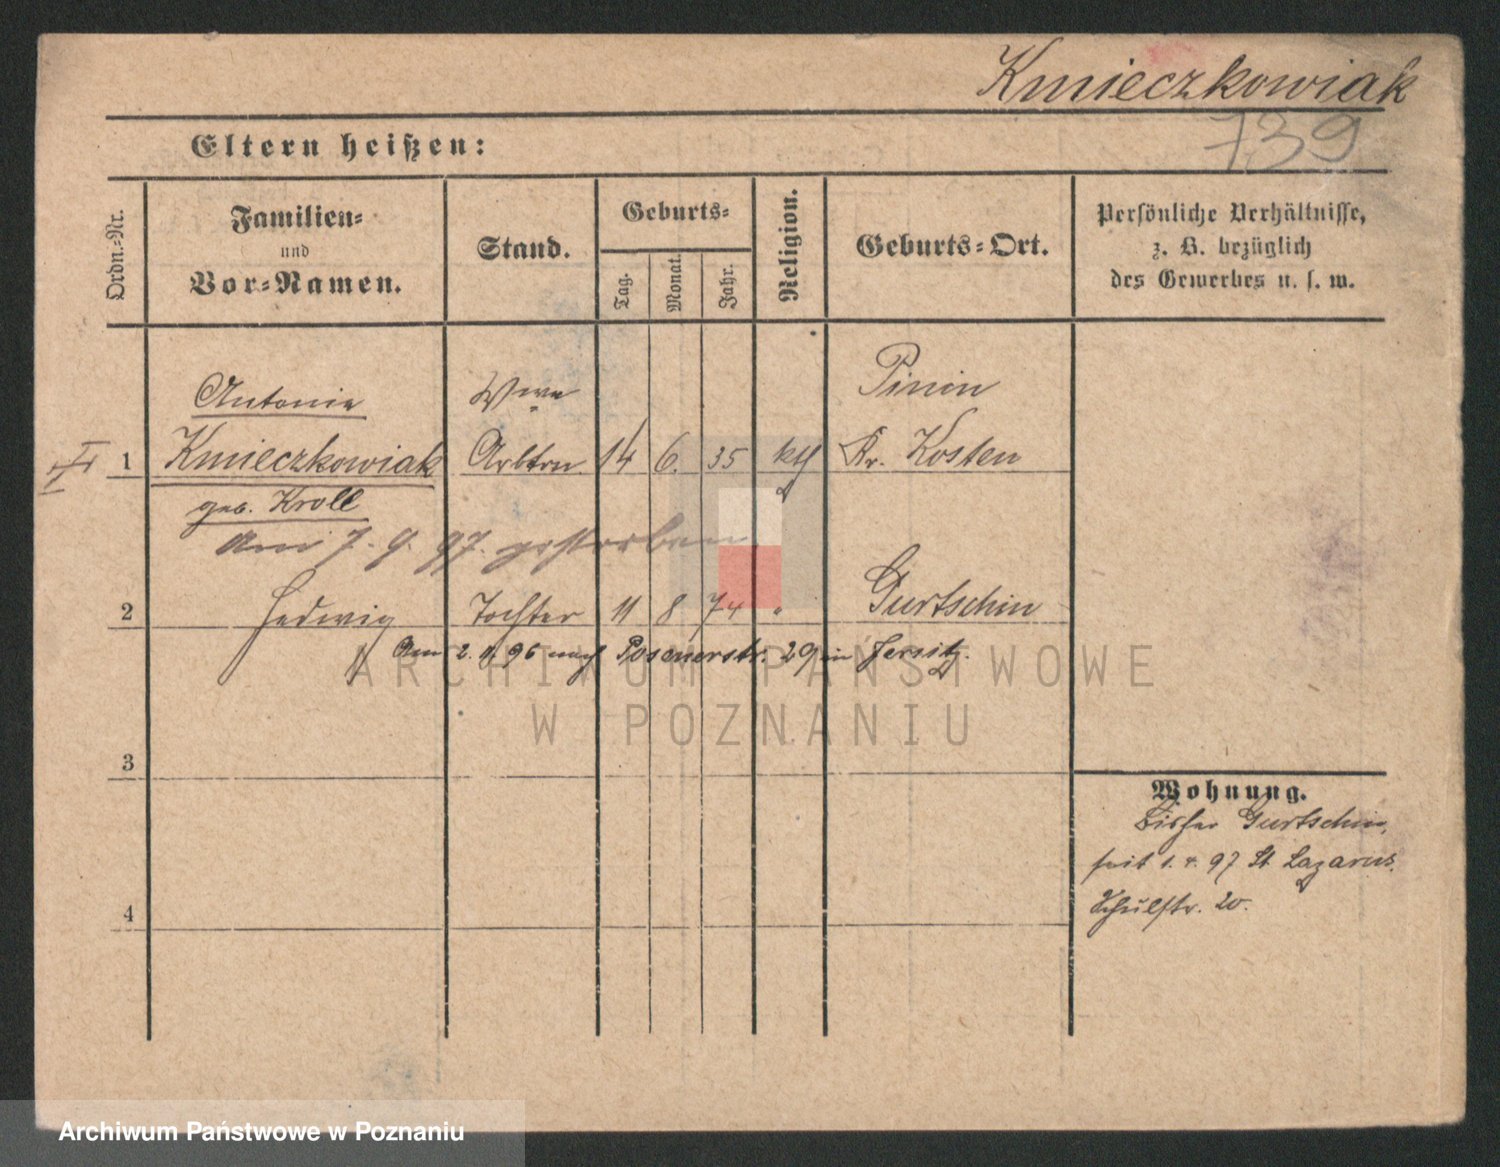 Kmieczkowiak
739
Eltern heißen:
Ordn.-Nr.
Familien-
und
Vor-Namen.
Stand.
Geburts-
Tag.
Monat.
Jahr.
Religion.
Geburts-Ort.
Persönliche Verhältnisse,
z. B. bezüglich
des Gewerbes u. s. w.
Antonie Wwe Pinin
I 1 Kmieczkowiak Arbtrn. 14 6. 35 kth Kr. Kosten
geb. Kroll
am 7. 9. 97. gestorben
2 Hedwig Tochter 11 8 74 " Gurtschin
Am 2. 11. 96 nach Posenerstr. 29 in Jersitz.
3
4
Wohnung.
Bisher Gurtschin,
seit 1. 4. 97 St. Lazarus.
Schulstr. 20.
ARCHIWUM PAŃSTWOWE
W POZNANIU
Archiwum Państwowe w Poznaniu